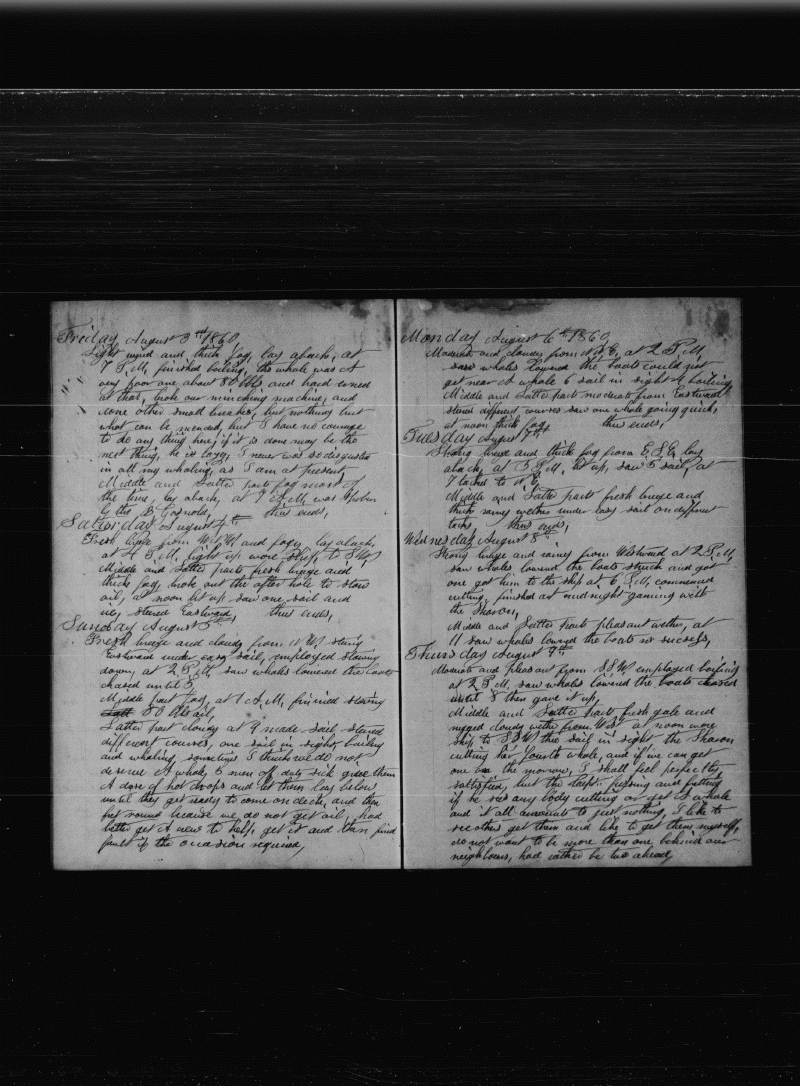 Friday August 3rd 1860
Light wind and thick fog, lay aback, at
7 P.M. finished boiling, the whale was A
very poor one about 80 bbls and hard earned
at that, broke our mincing machine, and
done other small breaks, but nothing but
what can be mended, but I have no courage
to do any thing here, if it is done may be the
next thing, he is lazy, I never was so disgusted
in all my whaling, as I am at present,
Middle and Latter part fog most of
the time, lay aback, at 7 A.M. was spoken
by the B. Gosnold, thus ends,
Satturday August 4th
Fresh breeze from W.S.W. and foggy, lay aback,
at 4 P.M. light up wore ship, to S.W.
Middle and Latter parts fresh breeze and
thick fog, broke out the after hole to stow
oil, at noon lit up saw one sail and
ice, steered Eastward, thus ends,
Sunday August 5th
Fresh breeze and cloudy from N.W. steering
Eastward under easy sail, employed stowing
down, at 2 P.M. saw whales lowered the boats
chased until 5,
Middle part fog, at 1 A.M. finished stowing
80 bbls oil,
Latter part cloudy at 4 made sail steered
different courses, one sail in sight, boiling
and whaling, sometimes I think we do not
deserve A whale, 5 men off duty sick give them
A dose of hot drops and let them lay below
until they get ready to come on deck, and then
fret round because we do not get oil, had
better get A new to help, get it and then find
fault if the occasion required,
Monday August 6th 1860
Moderate and cloudy from N.E. at 2 P.M.
saw whales lowered the boats could not
get near A whale 6 sail in sight 4 boiling,
Middle and Latter parts moderate from Eastward
steered different courses saw one whale going quick,
at noon thick fog, thus ends,
Tuesday August 7th
Strong breeze and thick fog from E.S.E. lay
aback, at 3 P.M. lit up, saw 5 sail, at
7 tacked to N.E.
Middle and Latter parts fresh breeze and
thick rainy wether under easy sail on different
tacks, thus ends,
Wednesday August 8th
Strong breeze and rainy from Westward at 2 P.M.
saw whales lowered the boats struck and got
one got him to the ship at 6 P.M. commenced
cutting, finished at midnight gamming with
the Sharon,
Middle and Latter parts pleasant wether, at
11 saw whales lowered the boats no success,
Thursday August 9th
Moderate and pleasant from S.S.W. employed boiling
at 2 P.M. saw whales lowered the boats chased
until 8 then gave it up,
Middle and Latter parts fresh gale and
rugged cloudy wether from W.S.W. at noon wore
ship to S.S.W. the sail in sight the Sharon
cutting her fourth whale, and if we can get
one on the morrow, I shall feel perfectly
satisfied, but the fussing and fretting
if he sees any body cutting or get A whale
and it all amounts to just nothing, I like to
see others get them and like to get them myself,
do not want to be more than one behind our
neighbours, had rather be two ahead,